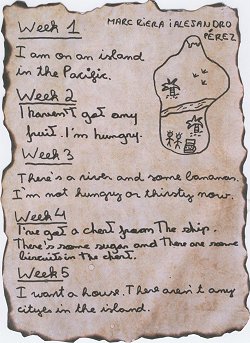 Week 1
MARC RIERA i ALEJANDRO
PÉREZ
I am on an island
in the Pacific.
Week 2
I haven't get any
fruit. I'm hungry.
Week 3
There's a river and some bananas.
I'm not hungry or thirsty now.
Week 4
I've got a chest from The ship.
There's some sugar and There are some
biscuits in the chest.
Week 5
I want a house. There aren't any
cityes in the island.